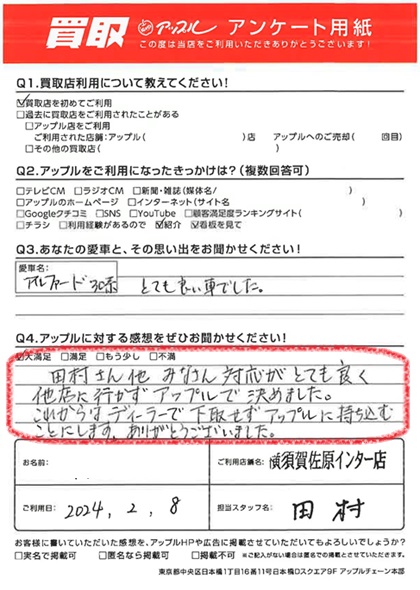 買取 アップル アンケート用紙
この度は当店をご利用いただきありがとうございます!
Q1.買取店利用について教えてください!
☑買取店を初めてご利用
□過去に買取店をご利用されたことがある
□アップル店をご利用
ご利用された店舗:アップル( )店 アップルへのご売却( 回目)
□その他の買取店( )
Q2.アップルをご利用になったきっかけは?(複数回答可)
□テレビCM □ラジオCM □新聞・雑誌(媒体名/ )
□アップルのホームページ □インターネット(サイト名 )
□Googleクチコミ □SNS □YouTube □顧客満足度ランキングサイト( )
□チラシ □利用経験があるので ☑紹介 ☑看板を見て
Q3.あなたの愛車と、その思い出をお聞かせください!
愛車名:
アルファード30系 とても良い車でした。
Q4.アップルに対する感想をぜひお聞かせください!
☑大満足 □満足 □もう少し □不満
田村さん他 みなさん対応がとても良く
他店に行かずアップルで決めました。
これからはディーラーで下取せずアップルに持ち込む
ことにします。ありがとうございました。
お名前:
ご利用店舗名: 横須賀佐原インター店
ご利用日: 2024,2,8
担当スタッフ名: 田村
お客様に書いていただいた感想を、アップルHPや広告に掲載させていただいてもよろしいでしょうか?
□実名で掲載可 □匿名なら掲載可 □掲載不可 ※ご記入がない場合は匿名での掲載とさせていただきます。
東京都中央区日本橋1丁目16番11号日本橋Dスクエア9F アップルチェーン本部